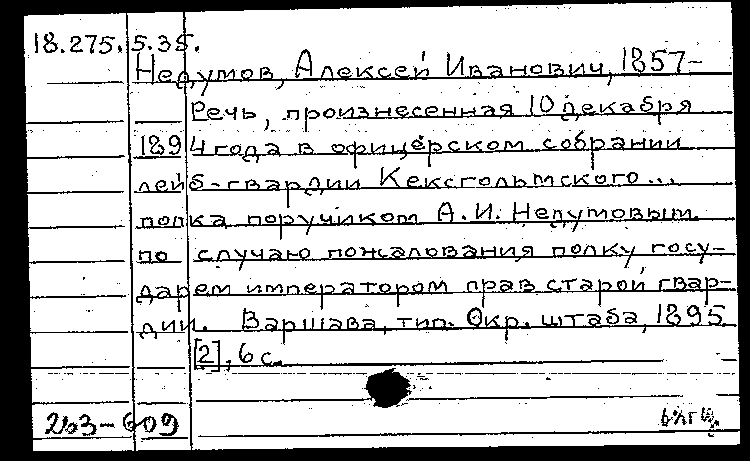 18.275.5.35.
Недумов, Алексей Иванович, 1857-
Речь, произнесенная 10 декабря
1894 года в офицерском собрании
лейб-гвардии Кексгольмского...
полка поручиком А.И. Недумовым
по случаю пожалования полку госу-
дарем императором прав старой гвар-
дии. Варшава, тип. Окр. штаба, 1895
[2], 6 с.
263-609